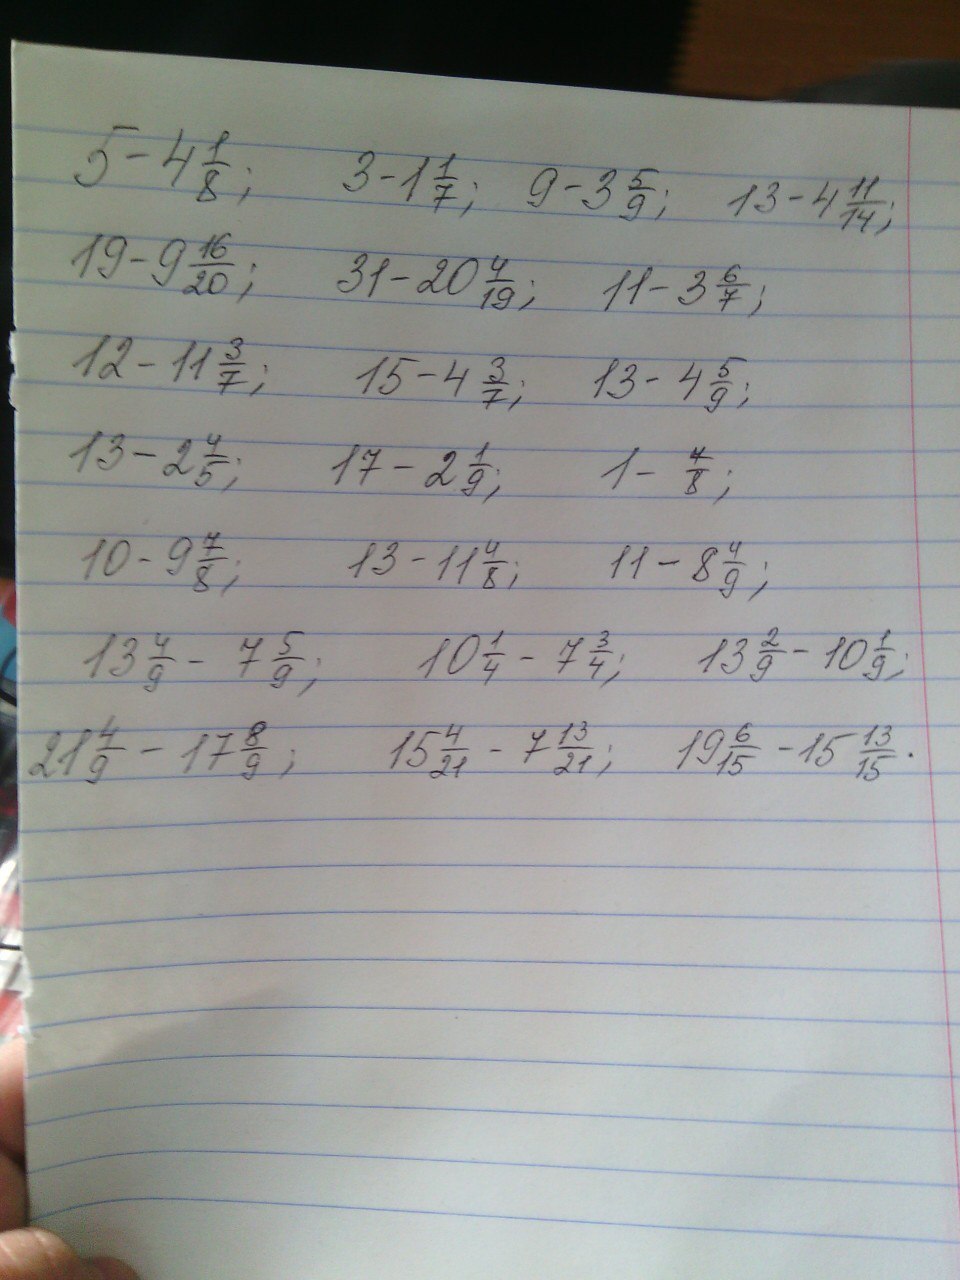 5 - 4 1/8; 3 - 1 1/7; 9 - 3 5/9; 13 - 4 11/14;
19 - 9 16/20; 31 - 20 4/19; 11 - 3 6/7;
12 - 11 3/7; 15 - 4 3/7; 13 - 4 5/9;
13 - 2 4/5; 17 - 2 1/9; 1 - 7/8;
10 - 9 7/8; 13 - 11 4/8; 11 - 8 4/9;
13 4/9 - 7 5/9; 10 1/4 - 7 3/4; 13 2/9 - 10 1/9;
21 4/9 - 17 8/9; 15 4/21 - 7 13/21; 19 6/15 - 15 13/15.